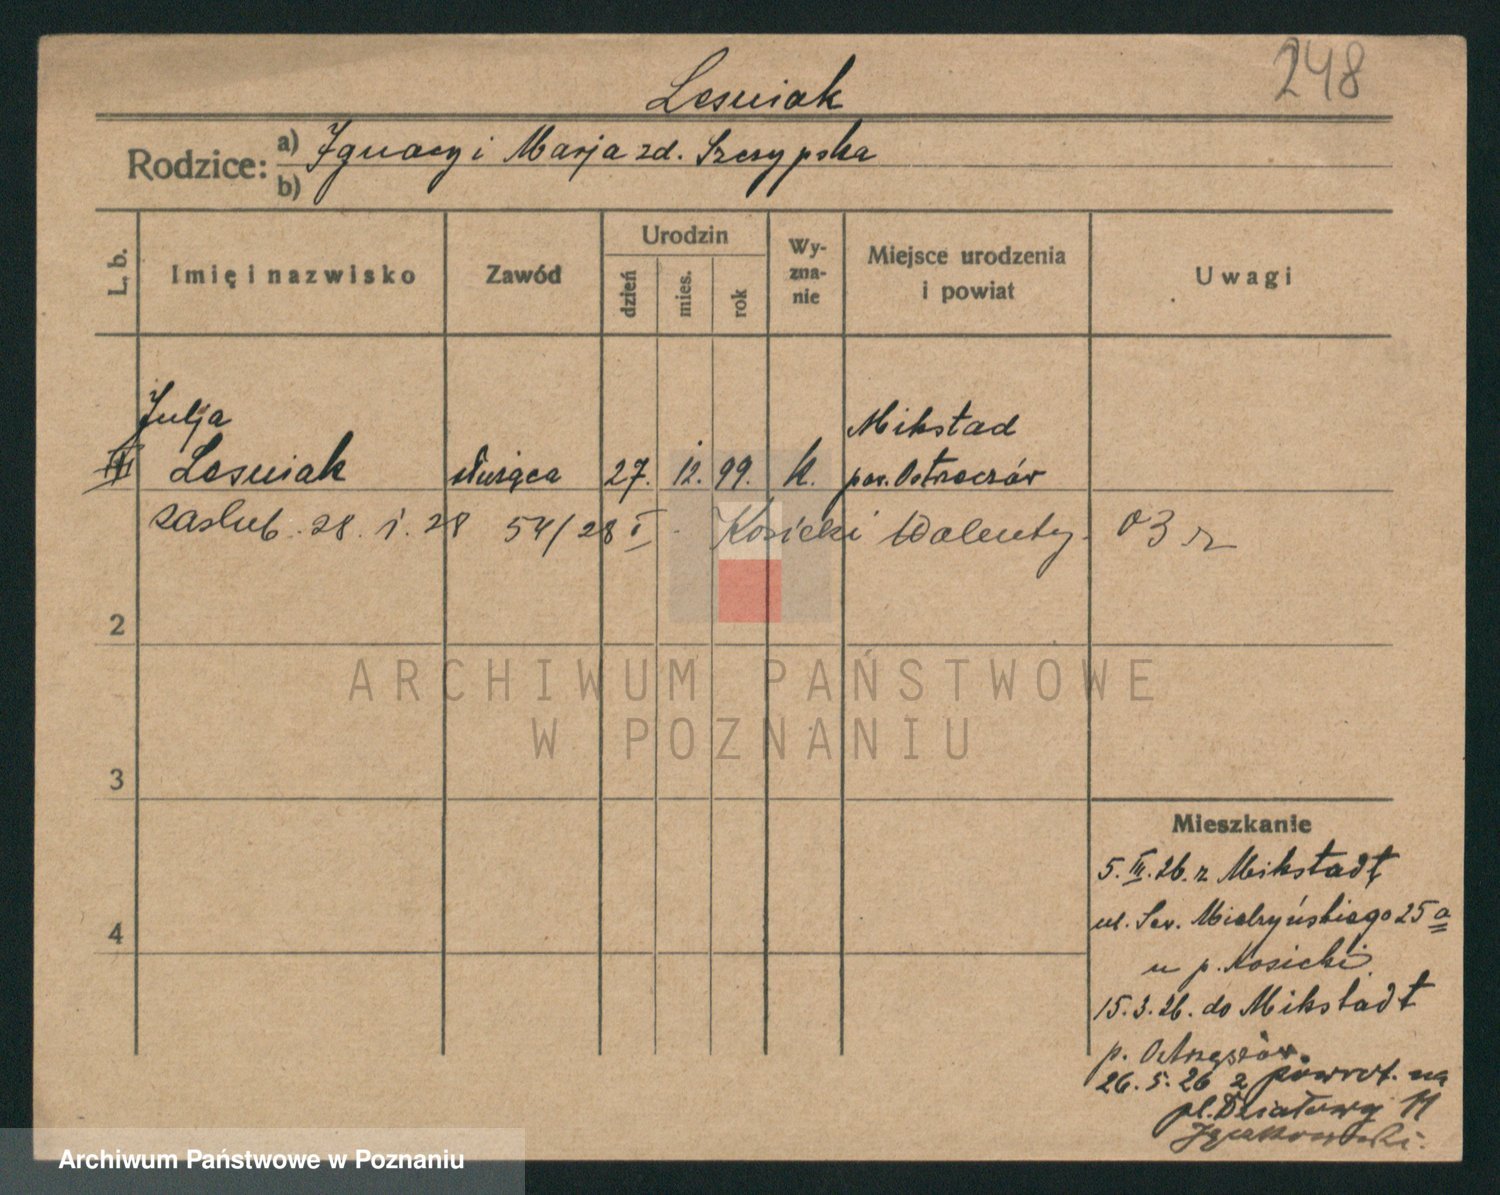 248
Lesniak
Rodzice: a) Ignacy i Marja zd. Szczypska
b)
L. b.
Imię i nazwisko
Zawód
Urodzin
dzień
mies.
rok
Wy-
zna-
nie
Miejsce urodzenia
i powiat
Uwagi
Julja
Lesniak służąca 27. 12. 99. k. Mikstad
pow. Ostrzeszów
zaslub. 28. 1. 28 54/28 I Kosicki Walenty 03 r
2
3
4
Mieszkanie
5. III. 26. z Mikstadt
ul. Sew. Mielżyńskiego 25 a
u p. Kosicki
15.3.26. do Mikstadt
p. Ostrzeszów.
26.5.26 z powrot. na
pl. Działowy 11
ARCHIWUM PAŃSTWOWE
W POZNANIU
Archiwum Państwowe w Poznaniu